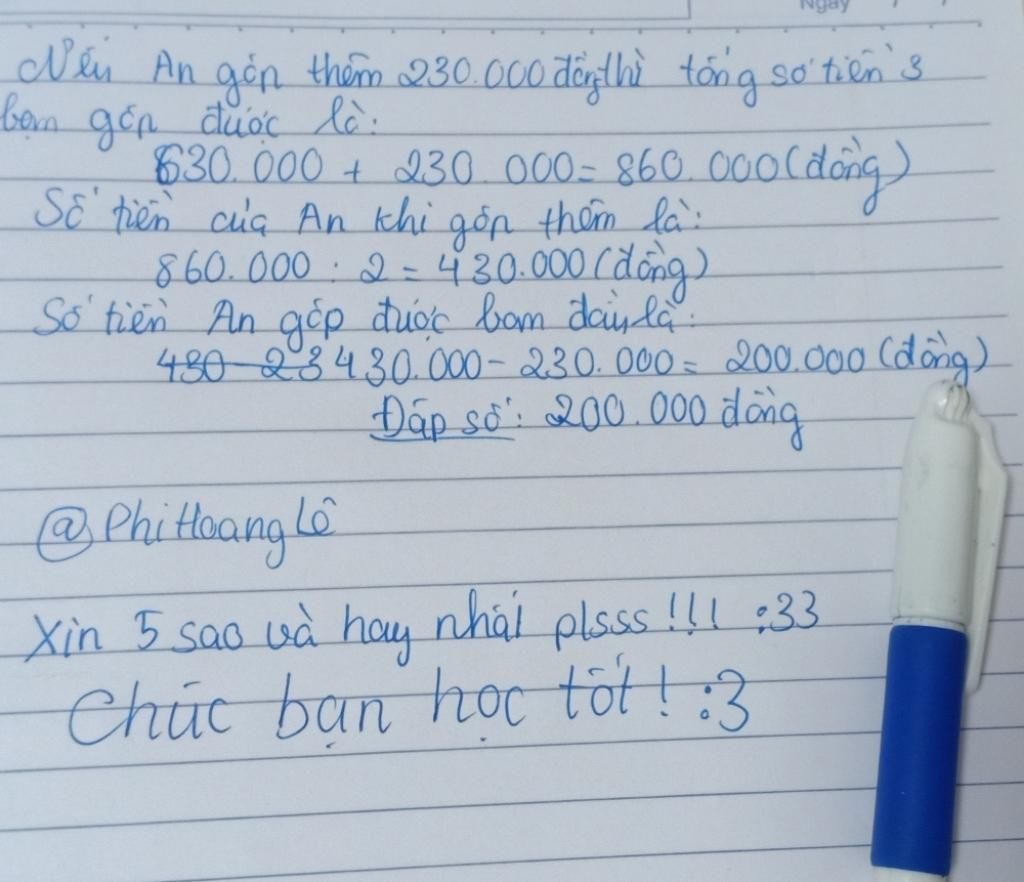 Ngày
Nếu An góp thêm 230.000 đồng thì tổng số tiền 3
bạn góp được là:
630.000 + 230.000 = 860.000 (đồng)
Số tiền của An khi góp thêm là:
860.000 : 2 = 430.000 (đồng)
Số tiền An góp được ban đầu là:
430 - 23 430.000 - 230.000 = 200.000 (đồng)
Đáp số: 200.000 đồng
@PhiHoangLê
Xin 5 sao và hay nhất plsss!!! :33
Chúc bạn học tốt! :3